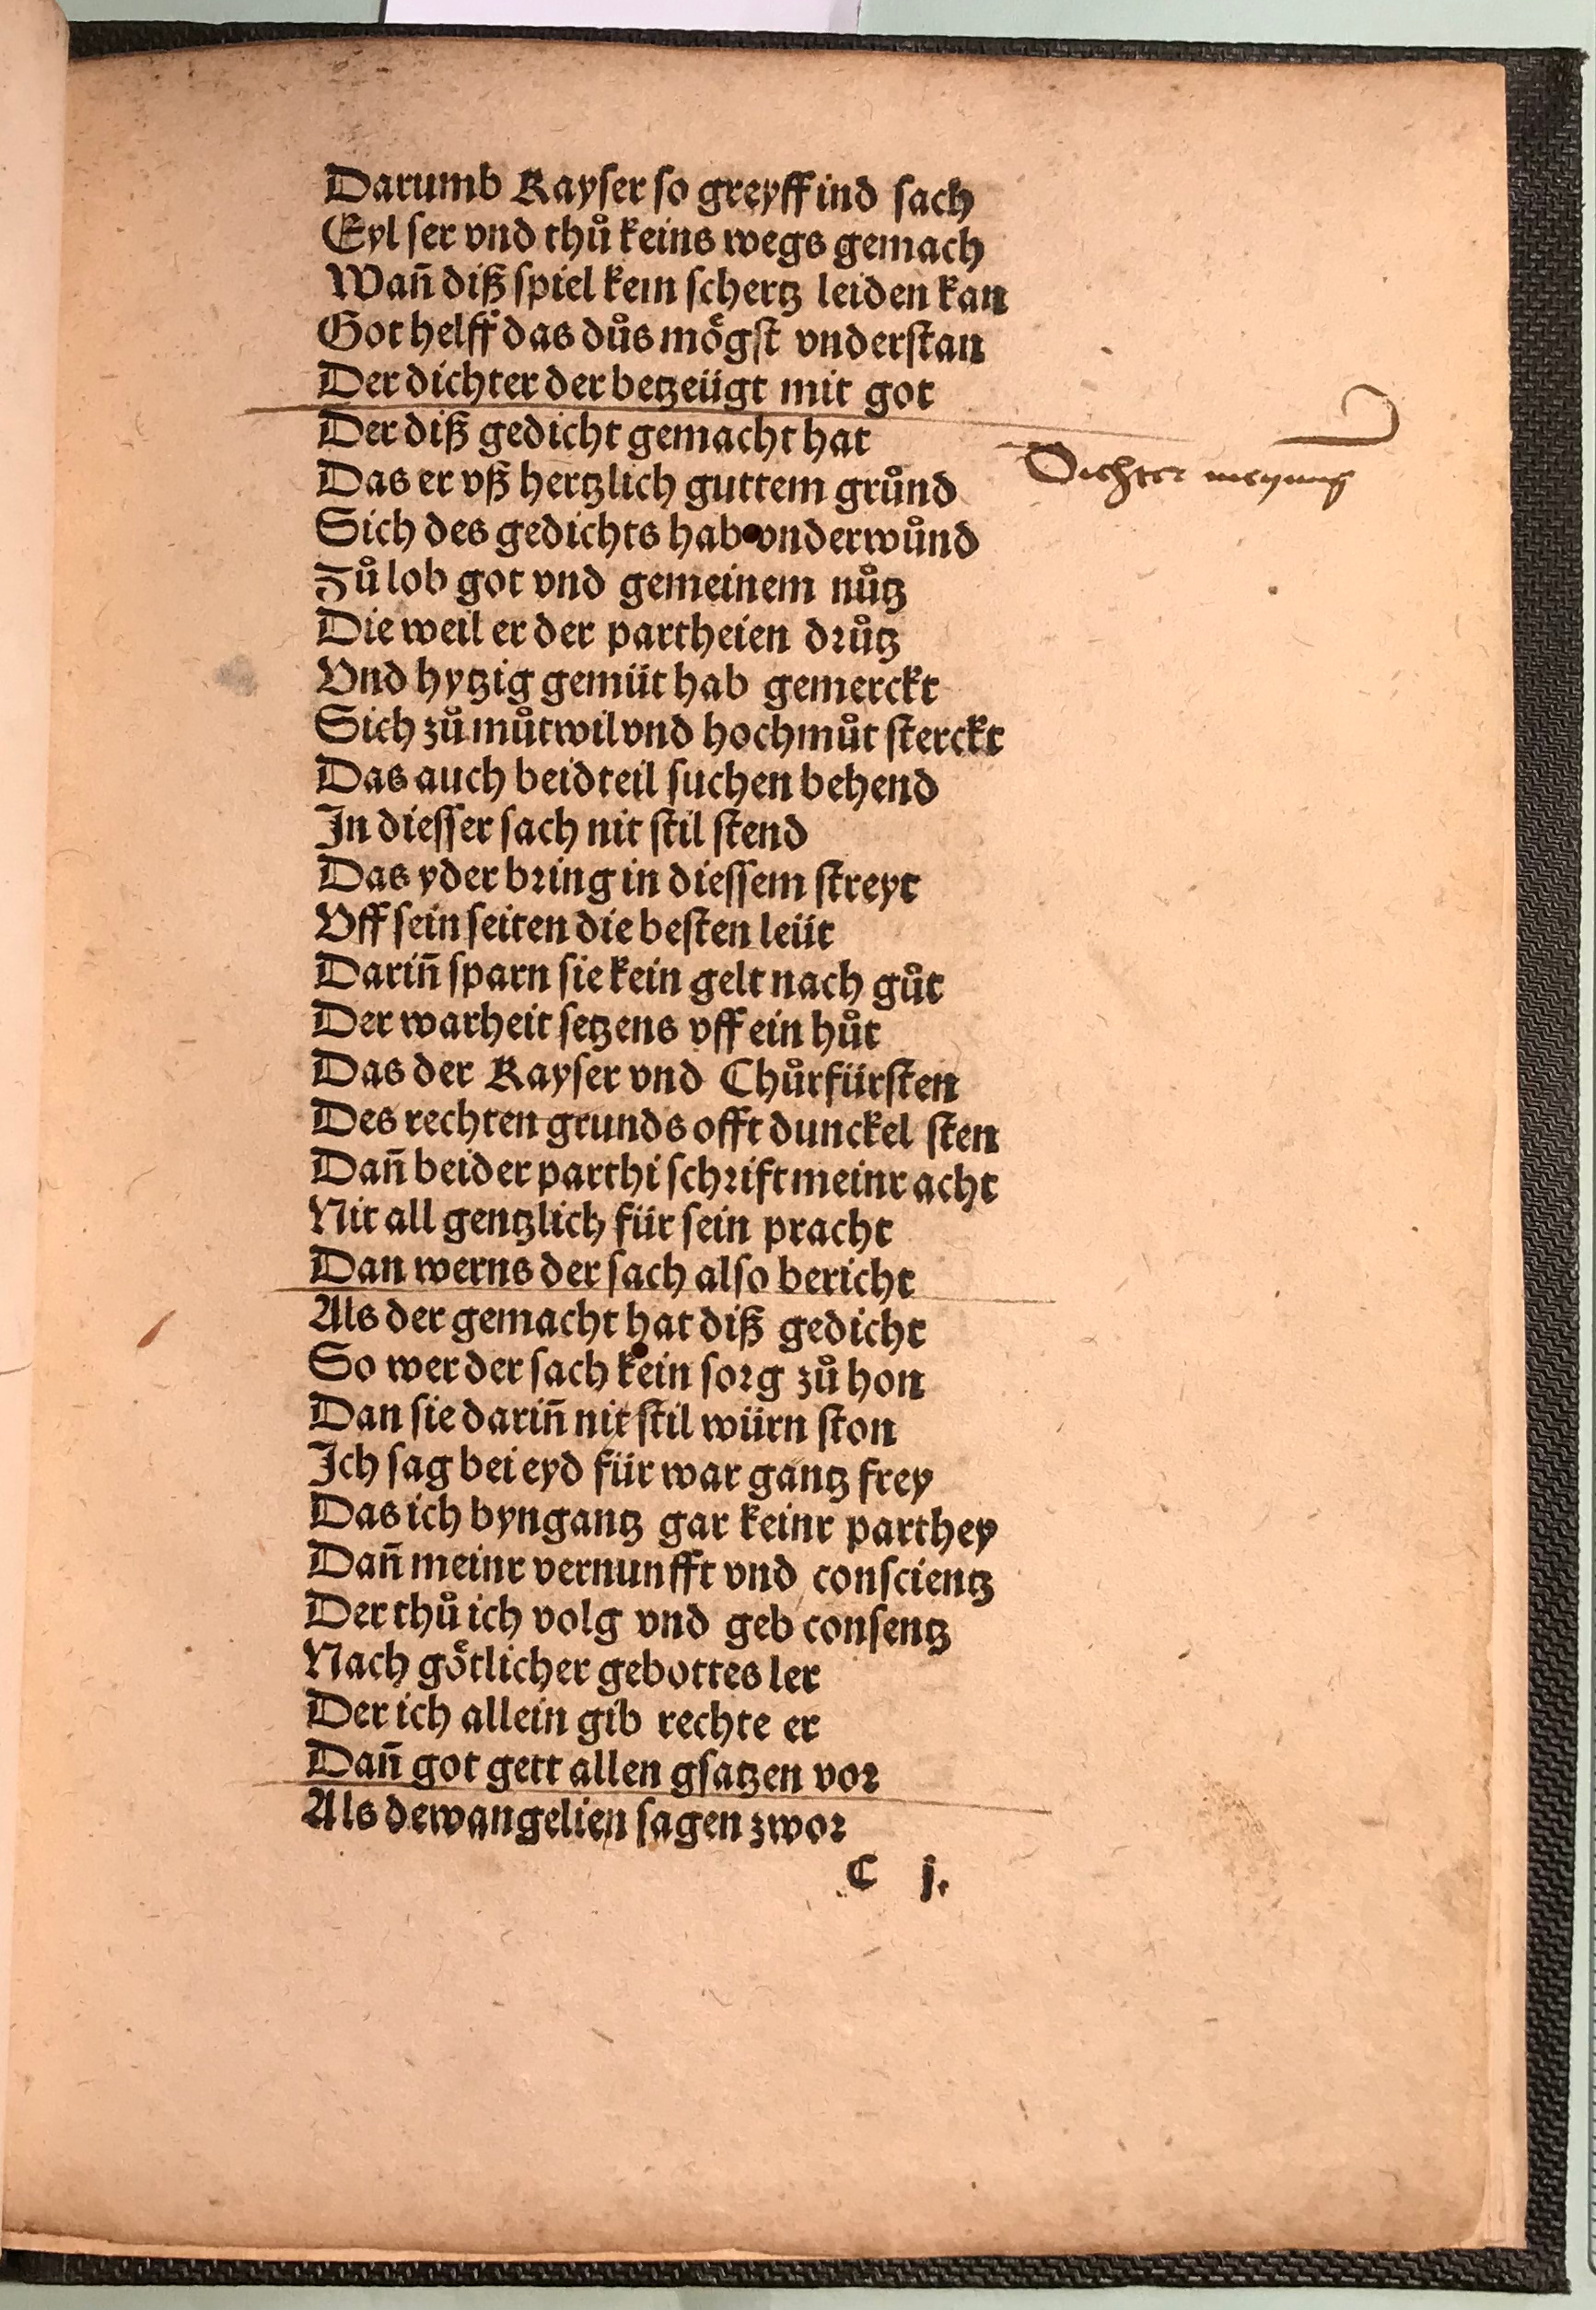 Darumb Kayser so greyff ind sach
Eyl ser vnd thů keins wegs gemach
Wañ diß spiel kein schertz leiden kan
Got helff das důs mögst vnderstan
Der dichter der betzeügt mit got
Der diß gedicht gemacht hat
Dichter meynung
Das er vß hertzlich guttem grůnd
Sich des gedichts hab vnderwůnd
Zů lob got vnd gemeinem nůtz
Die weil er der partheien drůtz
Vnd hytzig gemüt hab gemerckt
Sich zů můtwil vnd hochmůt sterckt
Das auch beidteil suchen behend
In diesser sach nit stil stend
Das yder bring in diessem streyt
Vff sein seiten die besten leüt
Dariñ sparn sie kein gelt nach gůt
Der warheit setzens vff ein hůt
Das der Kayser vnd Chůrfürsten
Des rechten grunds offt dunckel sten
Dañ beider parthi schrift meinr acht
Nit all gentzlich für sein pracht
Dan werns der sach also bericht
Als der gemacht hat diß gedicht
So wer der sach kein sorg zů hon
Dan sie dariñ nit stil würn ston
Ich sag bei eyd für war gantz frey
Das ich byn gantz gar keinr parthey
Dañ meinr vernunfft vnd conscientz
Der thů ich volg vnd geb consentz
Nach götlicher gebottes ler
Der ich allein gib rechte er
Dañ got gett allen gsatzen vor
Als dewangelien sagen zwor
C j.